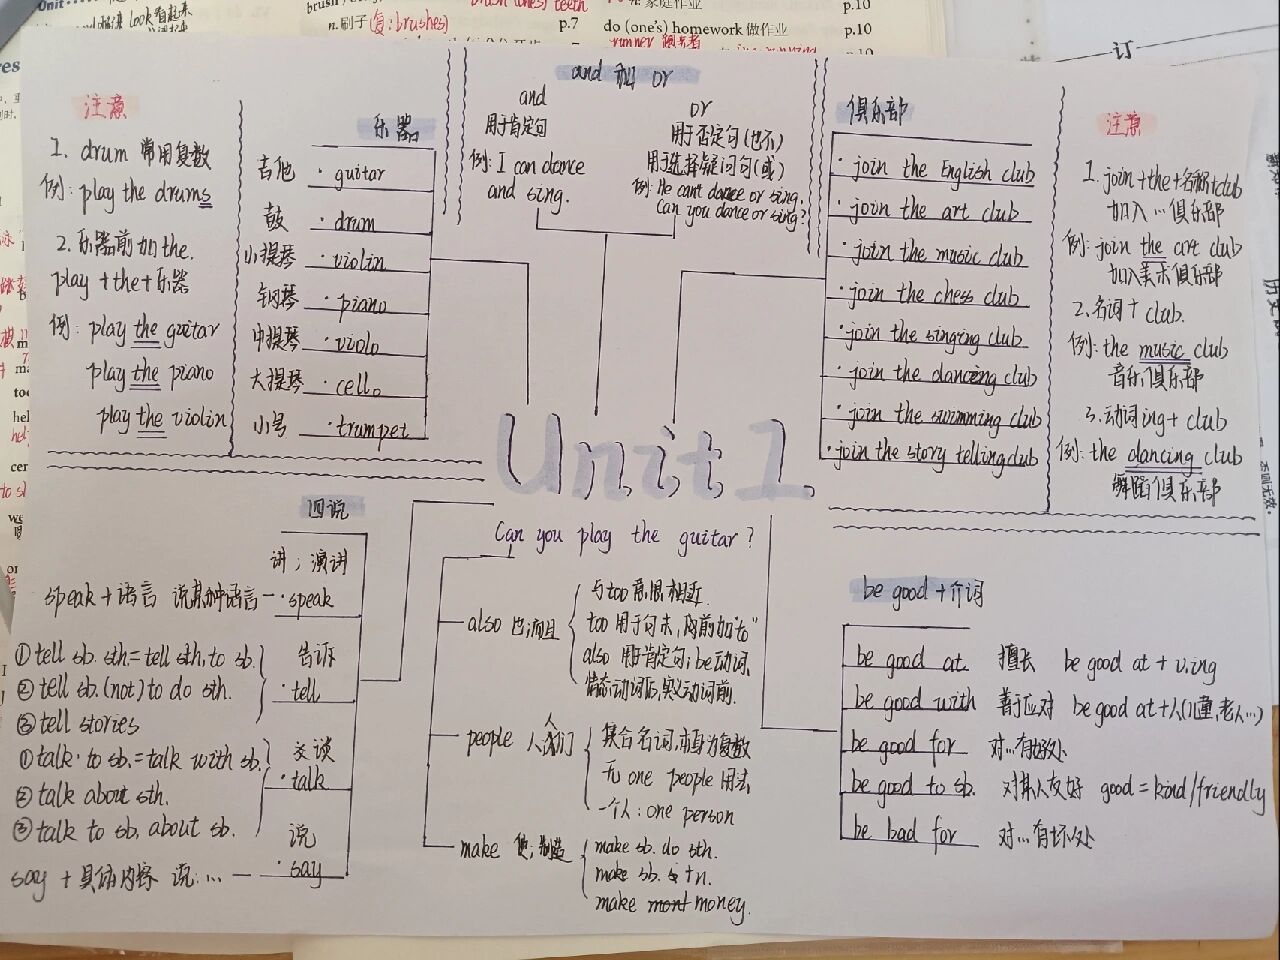 brush
teeth
n.刷子(复:brushes)
p.7
家庭作业
p.10
do (one's) homework 做作业
p.10
订
注意
1. drum 常用复数
例: play the drums
2. 乐器前加the.
play + the + 乐器
例: play the guitar
play the piano
play the violin
乐器
吉他 · guitar
鼓 · drum
小提琴 · violin
钢琴 · piano
中提琴 · violo
大提琴 · cello
小号 · trumpet
and 和 or
and
用于肯定句
例: I can dance
and sing.
or
用于否定句(也不)
用于选择疑问句(或)
例: He can't dance or sing.
Can you dance or sing?
俱乐部
· join the English club
· join the art club
· join the music club
· join the chess club
· join the singing club
· join the dancing club
· join the swimming club
· join the story telling club
注意
1. join+the+名称+club
加入…俱乐部
例: join the art club
加入美术俱乐部
2.名词+ club.
例: the music club
音乐俱乐部
3.动词ing+ club
例: the dancing club
舞蹈俱乐部
Unit 1.
Can you play the guitar?
四说
讲；演讲
speak + 语言 说某种语言 · speak
告诉
· tell
①tell sb. sth.=tell sth. to sb.
②tell sb.(not) to do sth.
③tell stories
交谈
· talk
①talk to sb.=talk with sb.
②talk about sth.
③talk to sb. about sb.
说
· say
say + 具体内容 说:…
also 也;而且
与too意思相近.
too 用于句末,
also 用于肯定句;be动词,
情态动词后,实义动词前.
people 人;人们
集合名词,本身为复数
无 one people 用法
一个人: one person
make 使;制造
make sb. do sth.
make sb.
make money.
be good + 介词
be good at 擅长 be good at + v.ing
be good with 善于应对 be good at+人(儿童,老人…)
be good for 对…有好处
be good to sb. 对某人友好 good = kind/friendly
be bad for 对…有坏处
否则无效。